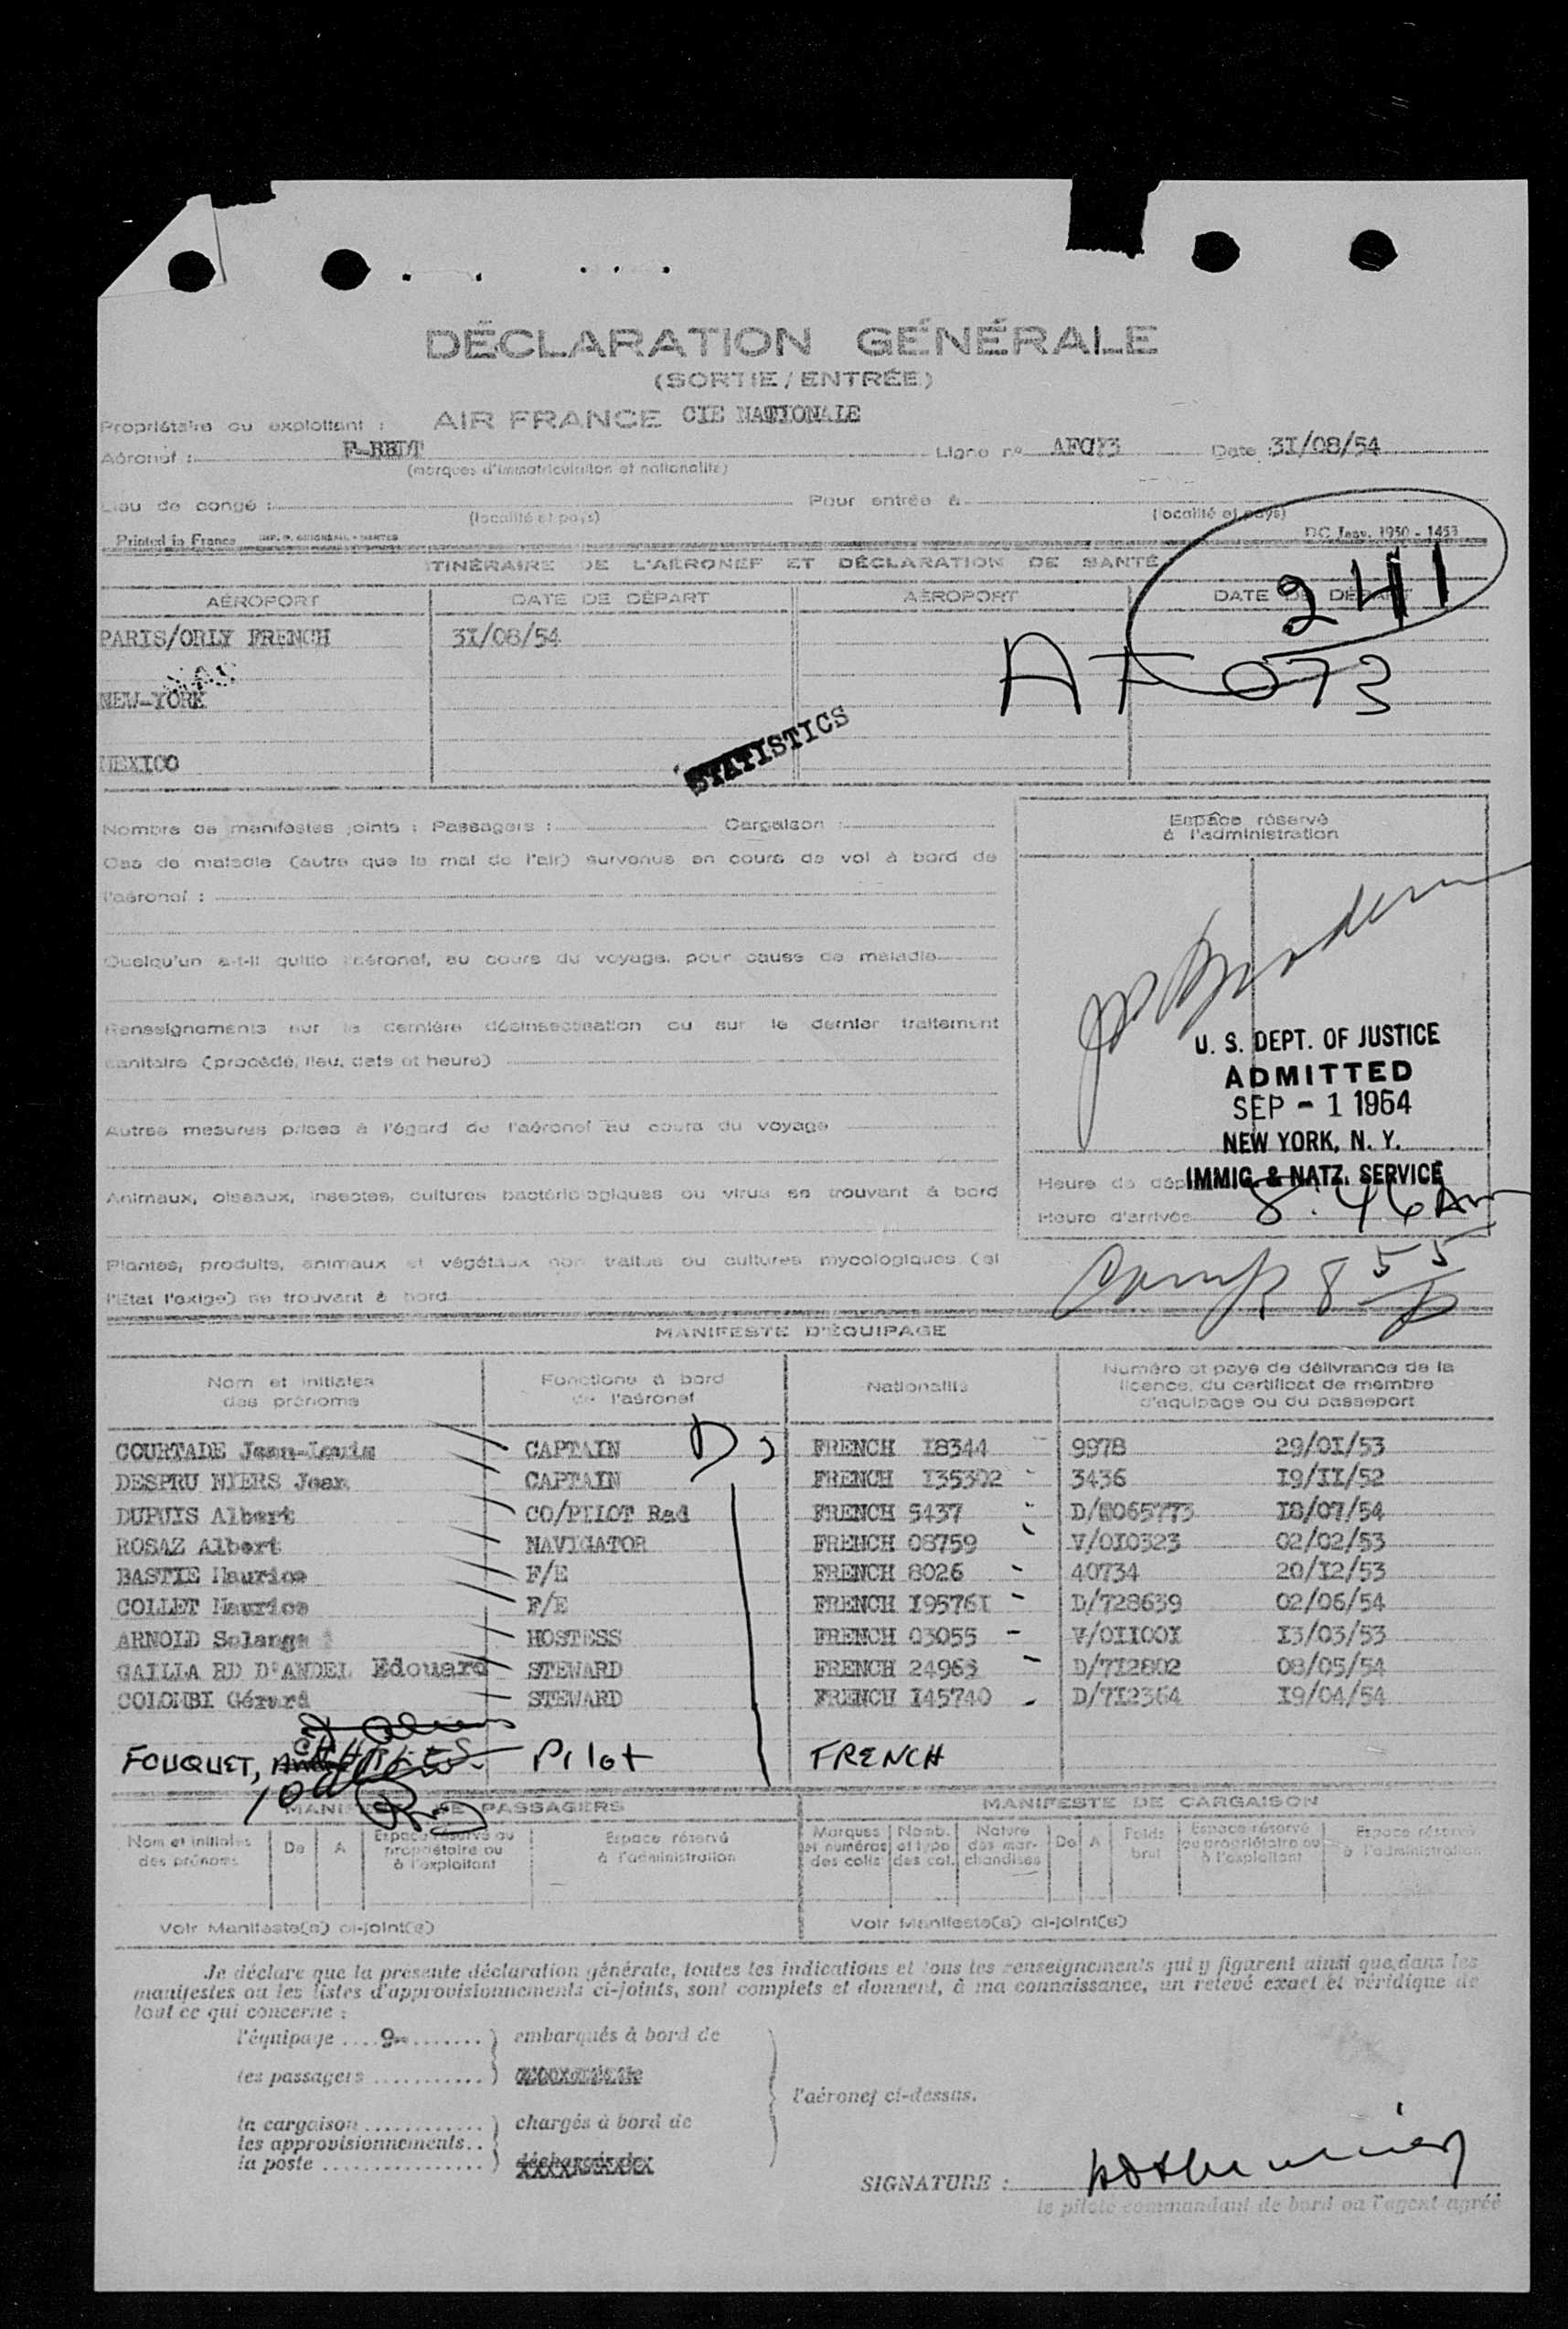 DÉCLARATION GÉNÉRALE
(SORTIE/ENTRÉE)
Propriétaire ou exploitant : AIR FRANCE CIE NATIONALE
Aéronef : Ligne nº Date 31/08/54
(marques d'immatriculation et nationalité)
Lieu de congé : Pour entrée à
(localité et pays) (localité et pays)
Printed in France DC Janv. 1950 - 1453
ITINÉRAIRE DE L'AÉRONEF ET DÉCLARATION DE SANTÉ
241
AÉROPORT DATE DE DÉPART AÉROPORT DATE DE DÉPART
PARIS/ORLY FRENCH 3I/08/54
AF 073
NEW-YORK
STATISTICS
MEXICO
Nombre de manifestes joints : Passagers : Cargaison :
Cas de maladie (autre que le mal de l'air) survenus en cours de vol à bord de
l'aéronef :
Quelqu'un a-t-il quitté l'aéronef, au cours du voyage, pour cause de maladie
Renseignements sur la dernière désinsectisation ou sur le dernier traitement
sanitaire (procédé, lieu, date et heure)
Autres mesures prises à l'égard de l'aéronef au cours du voyage
Animaux, oiseaux, insectes, cultures bactériologiques ou virus se trouvant à bord
Plantes, produits, animaux et végétaux non traités ou cultures mycologiques (si
l'Etat l'exige) se trouvant à bord
Espace réservé
à l'administration
U. S. DEPT. OF JUSTICE
ADMITTED
SEP - 1 1954
NEW YORK, N. Y.
IMMIG. & NATZ. SERVICE
Heure de
Heure d'arrivée 8:46 Am
8 55
MANIFESTE D'ÉQUIPAGE
Nom et initiales des prénoms Fonctions à bord de l'aéronef Nationalité Numéro et pays de délivrance de la licence, du certificat de membre d'équipage ou du passeport
COURTADE Jean-Louis CAPTAIN FRENCH I8344 9978 29/0I/53
DESPRU MYERS Jean CAPTAIN FRENCH I35302 3436 I9/II/52
DUPUIS Albert CO/PILOT Rad FRENCH 5437 I8/07/54
ROSAZ Albert NAVIGATOR FRENCH 08759 V/0I0323 02/02/53
BASTIE Maurice F/E FRENCH 8026 40734 20/I2/53
COLLET Maurice F/E FRENCH I9576I D/728639 02/06/54
ARNOLD Solange HOSTESS FRENCH 03055 V/0II00I I3/03/53
GAILLA RD D'ANDEL Edouard STEWARD FRENCH 24963 D/7I2802 08/05/54
COLOMBI Gérard STEWARD FRENCH I45740 D/7I2364 I9/04/54
FOUQUET, CHARLES Pilot FRENCH
MANIFESTE DE PASSAGERS MANIFESTE DE CARGAISON
Nom et initiales des prénoms De A Espace réservé au propriétaire ou à l'exploitant Espace réservé à l'administration Marques et numéros des colis Nomb. et type des col. Nature des marchandises De A Poids brut Espace réservé au propriétaire ou à l'exploitant Espace réservé à l'administration
Voir Manifeste(s) ci-joint(s) Voir Manifeste(s) ci-joint(s)
Je déclare que la présente déclaration générale, toutes les indications et tous les renseignements qui y figurent ainsi que dans les
manifestes ou les listes d'approvisionnements ci-joints, sont complets et donnent, à ma connaissance, un relevé exact et véridique de
tout ce qui concerne :
l'équipage .... 9 ....... ) embarqués à bord de
les passagers ........... )
l'aéronef ci-dessus.
la cargaison ............ ) chargés à bord de
les approvisionnements..
la poste ................ )
SIGNATURE :
le pilote commandant de bord ou l'agent agréé